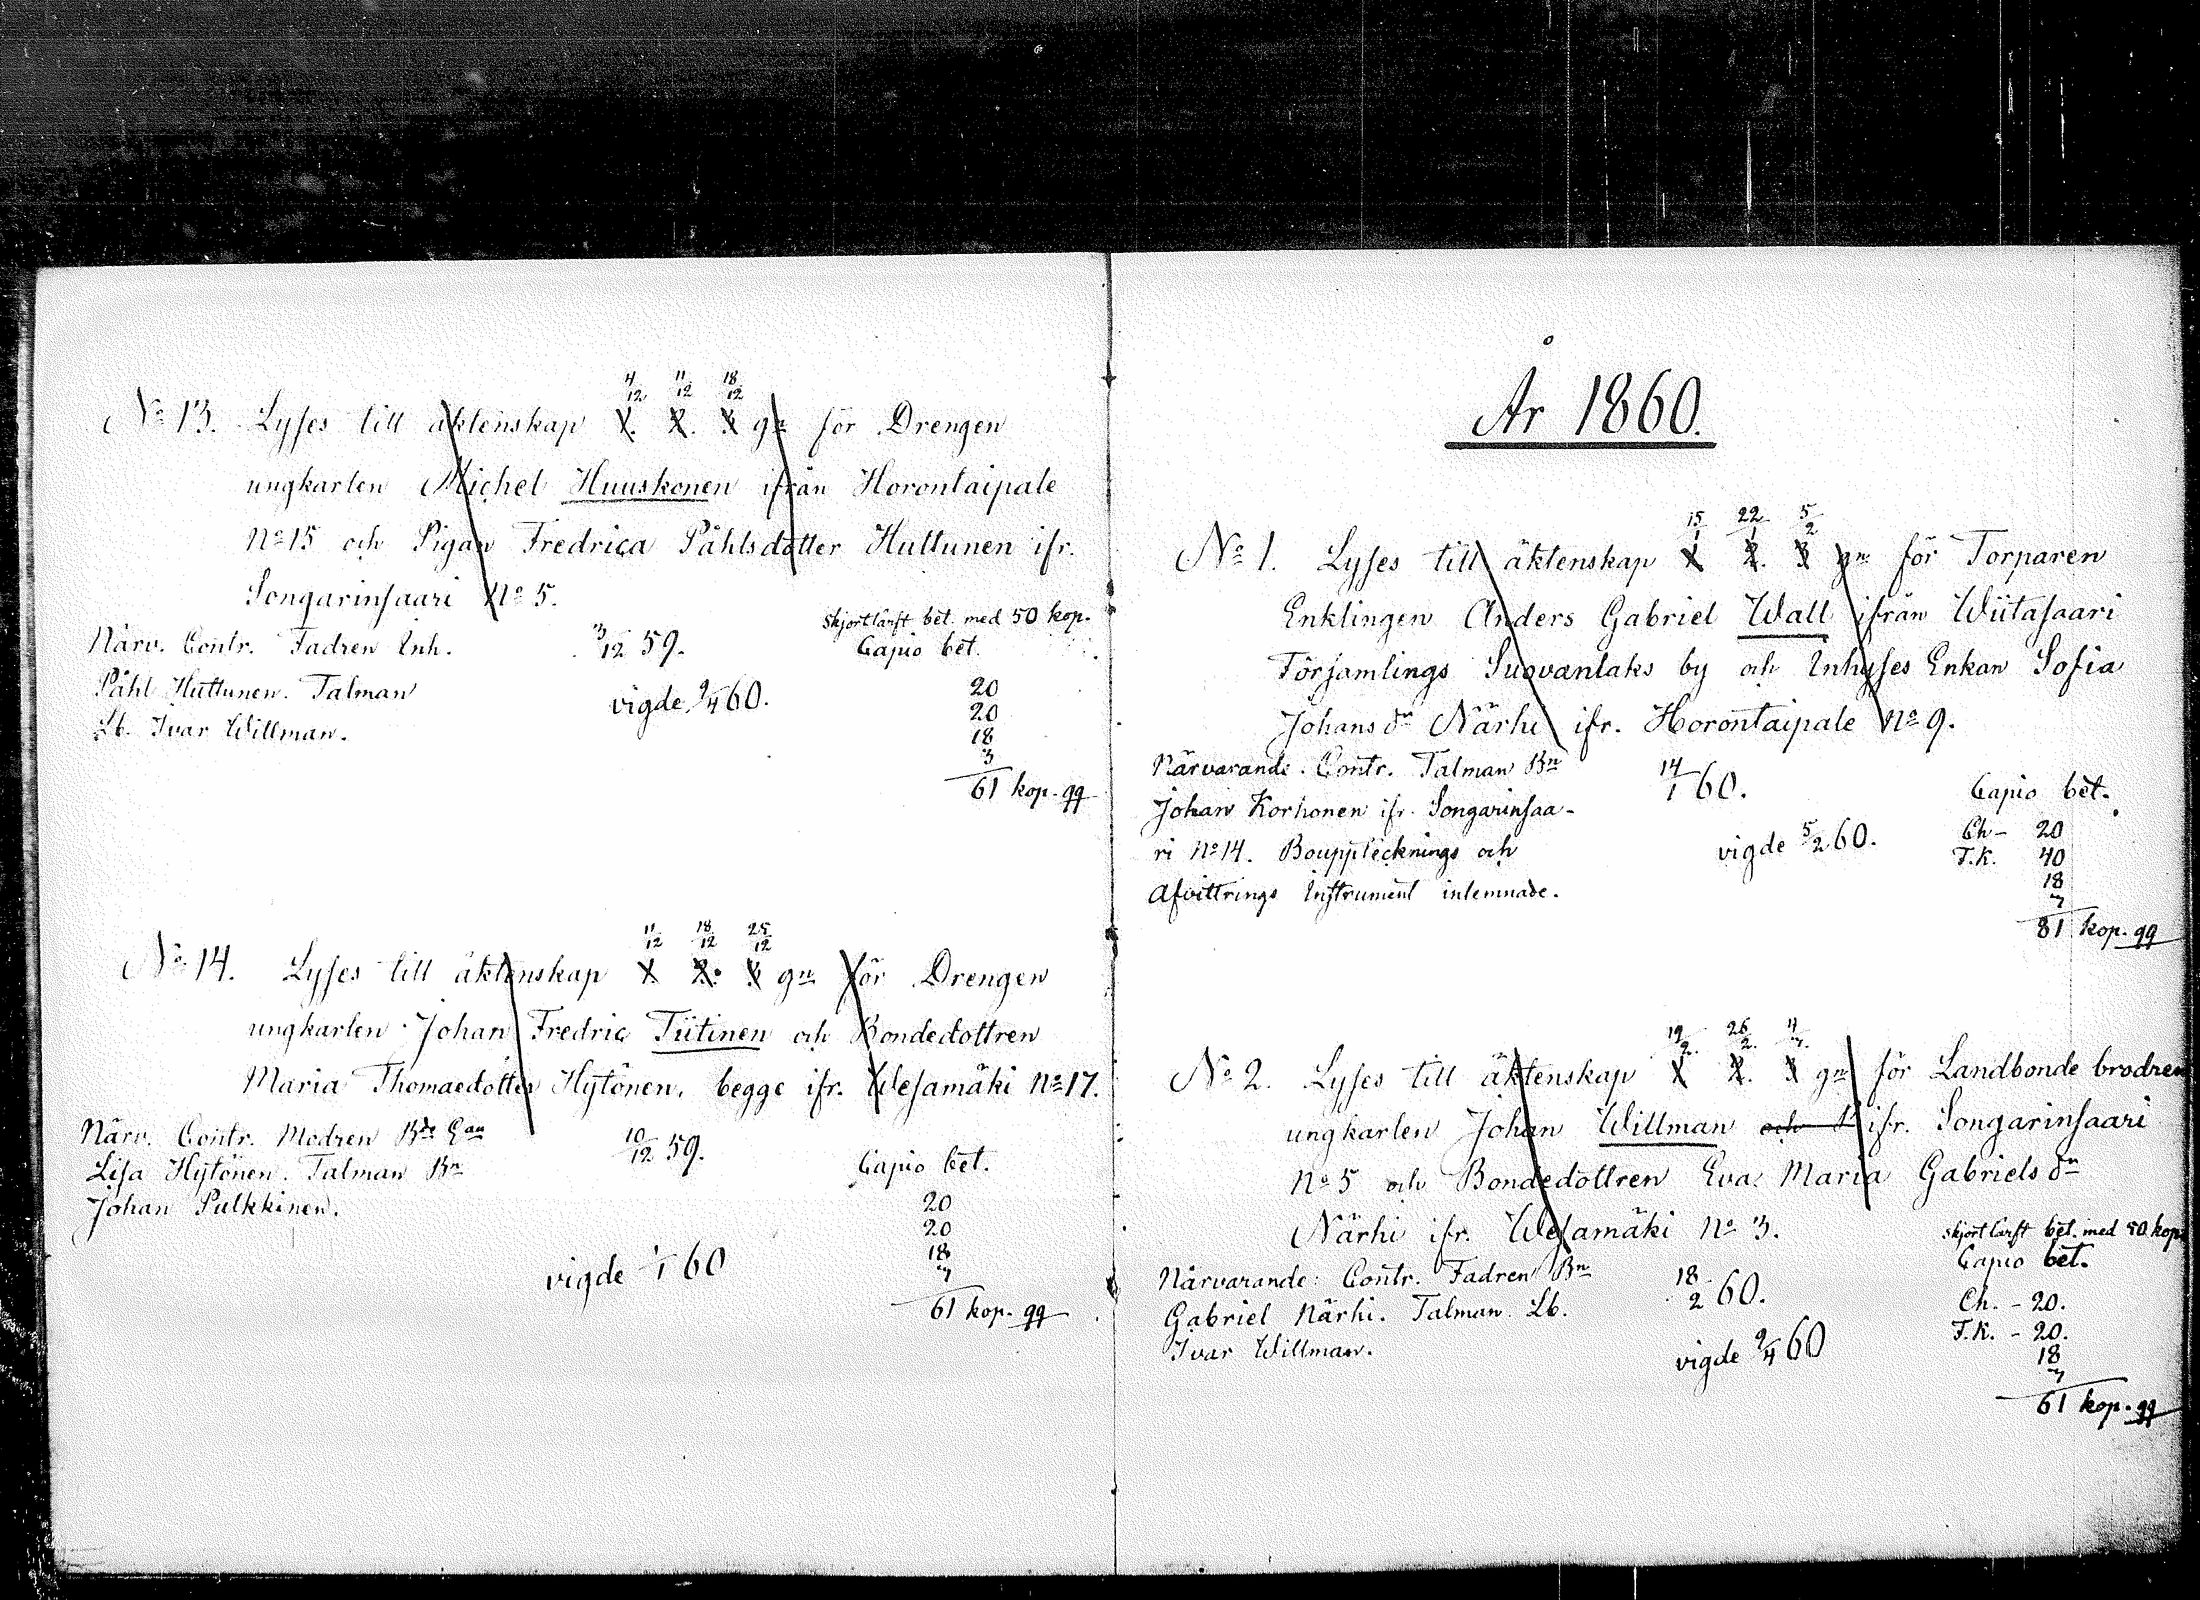 4/12 11/12 18/12
No 13. Lyses till äktenskap 1. 2. 3 gn för Drengen
ungkarlen Michel Huuskonen ifrån Horontaipale
No 15 och Pigan Fredrica Påhlsdotter Huttunen ifr.
Songarinsaari No 5.
skjortlärft bet. med 50 kop.
Närv. Contr. Fadren Inh. 3/12 59. Capio bet.
Påhl Huttunen. Talman vigde 9/4 60. 20
20
Lb. Ivar Willman. 18
3
61 kop. qq
11/12 18/12 25/12
No 14. Lyses till äktenskap 1. 2. 3 gn för Drengen
ungkarlen Johan Fredric Tiitinen och Bondedottren
Maria Thomaedotter Hytönen, begge ifr. Wesamäki No 17.
Närv. Contr. Modren Bde Ean 10/12 59.
Lisa Hytönen. Talman Bn Capio bet.
Johan Pulkkinen. 20
20
18
3
vigde 1/1 60
61 kop. qq
År 1860.
15/1 22/1 5/2
No 1. Lyses till äktenskap 1 2. 3 gn för Torparen
Enklingen Anders Gabriel Wall ifrån Wiitasaari
Församlings Suovanlaks by och Inhyses Enkan Sofia
Johans dr Närhi ifr. Horontaipale No 9.
Närvarande. Contr. Talman Bn 14/1 60.
Johan Korhonen ifr. Songarinsaa- Capio bet.
ri No 14. Boupptecknings och vigde 5/2 60. Ch - 20
T.K. 40
Afvittrings Instrument inlemnade. 18
3
81 kop. qq
19/2. 26/2. 4/3.
No 2. Lyses till äktenskap 1 2. 3 gn för Landbonde brodren
ungkarlen Johan Willman och ifr. Songarinsaari
No 5 och Bondedottren Eva Maria Gabriels dr
Närhi ifr. Wesamäki No 3.
skjortlärft bet. med 50 kop.
Närvarande: Contr. Fadren Bn 18/2 60. Capio bet.
Gabriel Närhi. Talman Lb. Ch. - 20.
Ivar Willman. vigde 9/4 60 T.K. - 20.
18
3
61 kop. qq